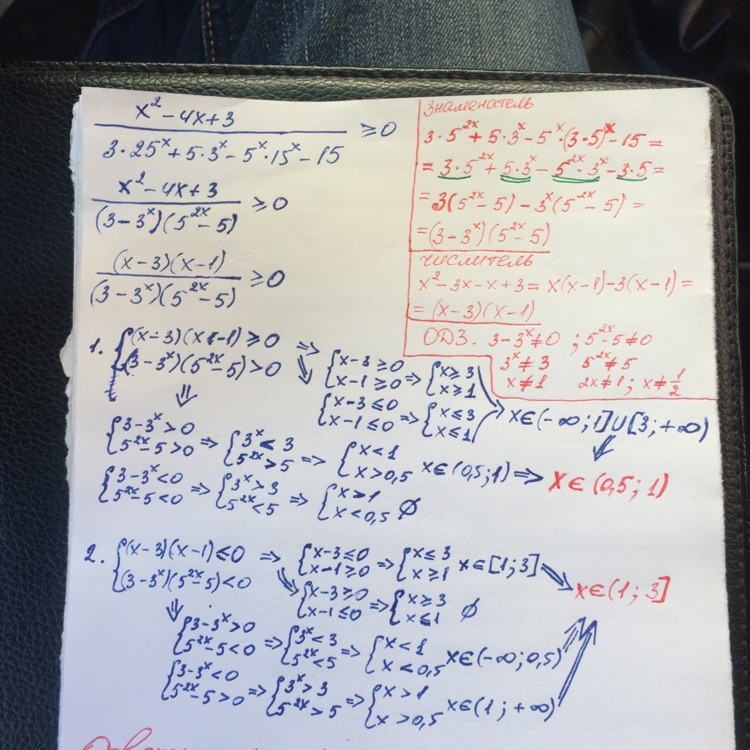 x² - 4x + 3 / 3·25ˣ + 5·3ˣ - 5ˣ·15ˣ - 15 ≥ 0
x² - 4x + 3 / (3 - 3ˣ)(5²ˣ - 5) ≥ 0
(x - 3)(x - 1) / (3 - 3ˣ)(5²ˣ - 5) ≥ 0
Знаменатель
3·5²ˣ + 5·3ˣ - 5ˣ·(3·5)ˣ - 15 =
= 3·5²ˣ + 5·3ˣ - 5²ˣ·3ˣ - 3·5 =
= 3(5²ˣ - 5) - 3ˣ(5²ˣ - 5) =
= (3 - 3ˣ)(5²ˣ - 5)
Числитель
x² - 3x - x + 3 = x(x - 1) - 3(x - 1) =
= (x - 3)(x - 1)
ОДЗ. 3 - 3ˣ ≠ 0 ; 5²ˣ - 5 ≠ 0
3ˣ ≠ 3 5²ˣ ≠ 5
x ≠ 1 2x ≠ 1 ; x ≠ 1/2
1. { (x - 3)(x - 1) ≥ 0 =>
(3 - 3ˣ)(5²ˣ - 5) > 0
{ x - 3 ≥ 0
x - 1 ≥ 0 => { x ≥ 3
x ≥ 1
{ x - 3 ≤ 0
x - 1 ≤ 0 => { x ≤ 3
x ≤ 1
x ∈ (-∞ ; 1] ∪ [3 ; +∞)
{ 3 - 3ˣ > 0
5²ˣ - 5 > 0 => { 3ˣ < 3
5²ˣ > 5 => { x < 1
x > 0,5 x ∈ (0,5 ; 1) => x ∈ (0,5 ; 1)
{ 3 - 3ˣ < 0
5²ˣ - 5 < 0 => { 3ˣ > 3
5²ˣ < 5 => { x > 1
x < 0,5 ∅
2. { (x - 3)(x - 1) ≤ 0 =>
(3 - 3ˣ)(5²ˣ - 5) < 0
{ x - 3 ≤ 0
x - 1 ≥ 0 => { x ≤ 3
x ≥ 1 x ∈ [1 ; 3]
x ∈ (1 ; 3]
{ x - 3 ≥ 0
x - 1 ≤ 0 => { x ≥ 3
x ≤ 1 ∅
{ 3 - 3ˣ > 0
5²ˣ - 5 < 0 => { 3ˣ < 3
5²ˣ < 5 => { x < 1
x < 0,5 x ∈ (-∞ ; 0,5)
{ 3 - 3ˣ < 0
5²ˣ - 5 > 0 => { 3ˣ > 3
5²ˣ > 5 => { x > 1
x > 0,5 x ∈ (1 ; +∞)